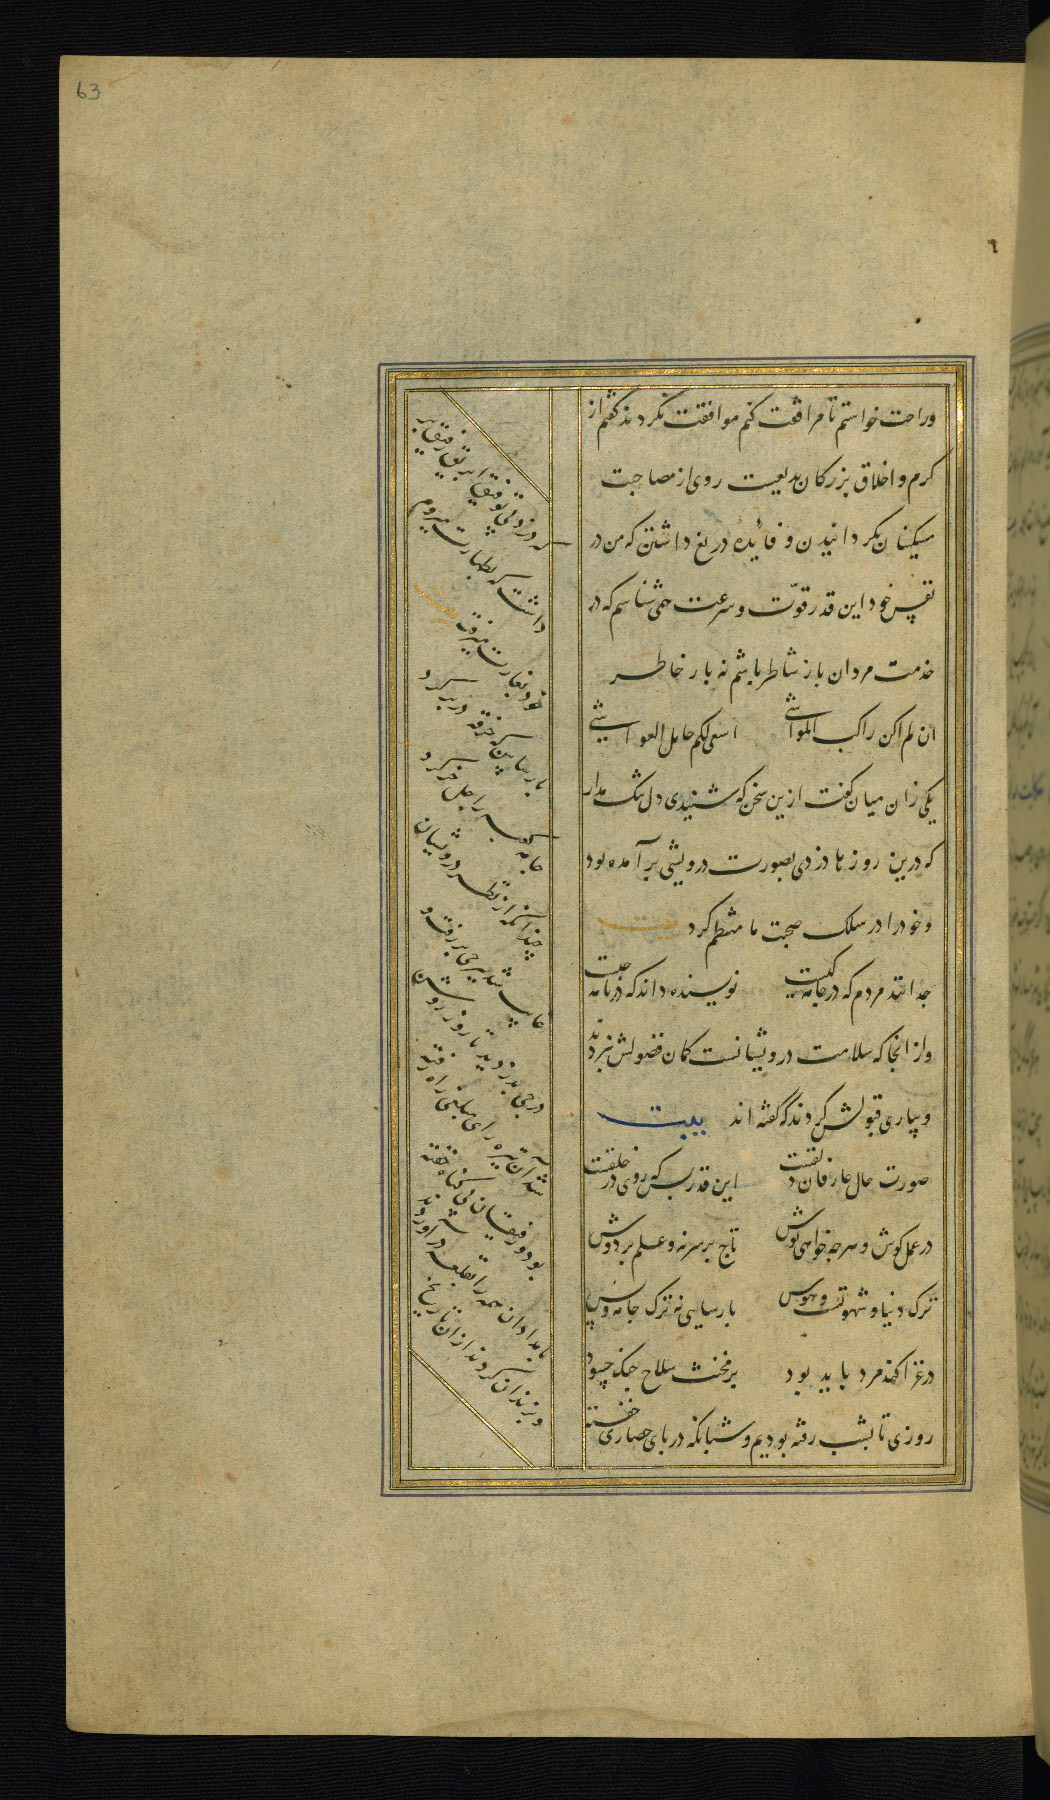 63
وراحت خواستم تا مرافقت کنم موافقت نکردند گفتم از
کرم و اخلاق بزرگان بدیعست روی از مصاحبت
مسکینان بگردانیدن و فائده دریغ داشتن که من در
نفس خود این قدر قوّت و سرعت همی شناسم که در
خدمت مردان یار شاطر باشم نه بار خاطر
ان لم اکن راکب المواشی اسعی لکم حامل الغواشی
یکی زان میان گفت ازین سخن که شنیدی دل تنک مدار
که درین روزها دزدی بصورت درویشی بر آمده بود
و خود را در سلک صحبت ما منتظم کرد بیت
چه دانند مردم که در جامه کیست نویسنده داند که در نامه چیست
و از انجا که سلامت درویشانست کمان فضولش نبردند
و بیاری قبولش کردند که گفته اند بیت
صورت حال عارفان دلقست این قدر بس که روی در خلقست
در عمل کوش و هرچه خواهی پوش تاج بر سر نه و علم بر دوش
ترک دنیا و شهوتست و هوس پارسایی نه ترک جامه و بس
در غزاکند مرد باید بود بر مخنث سلاح جنک چه سود
روزی تا بشب رفته بودیم و شبانکه در پای حصاری خفته
که دزد بی توفیق ابریق رفیق بر
داشت که بطهارت میروم
خود بغارت میرفت بیت
پارسا بین که خرقه در بر کرد
جامه کعبه را جل خر کرد
چندانکه از نظر درویشان
غایب شد ببرجی بر رفت و
درجی بدزدید تا روز روشن
شد آن تیره رای مبلغی راه رفته
بود و رفیقان بی گناه خفته
بامدادان همه را بقلعه در آوردند
و بزندان کردند از ان تاریخ